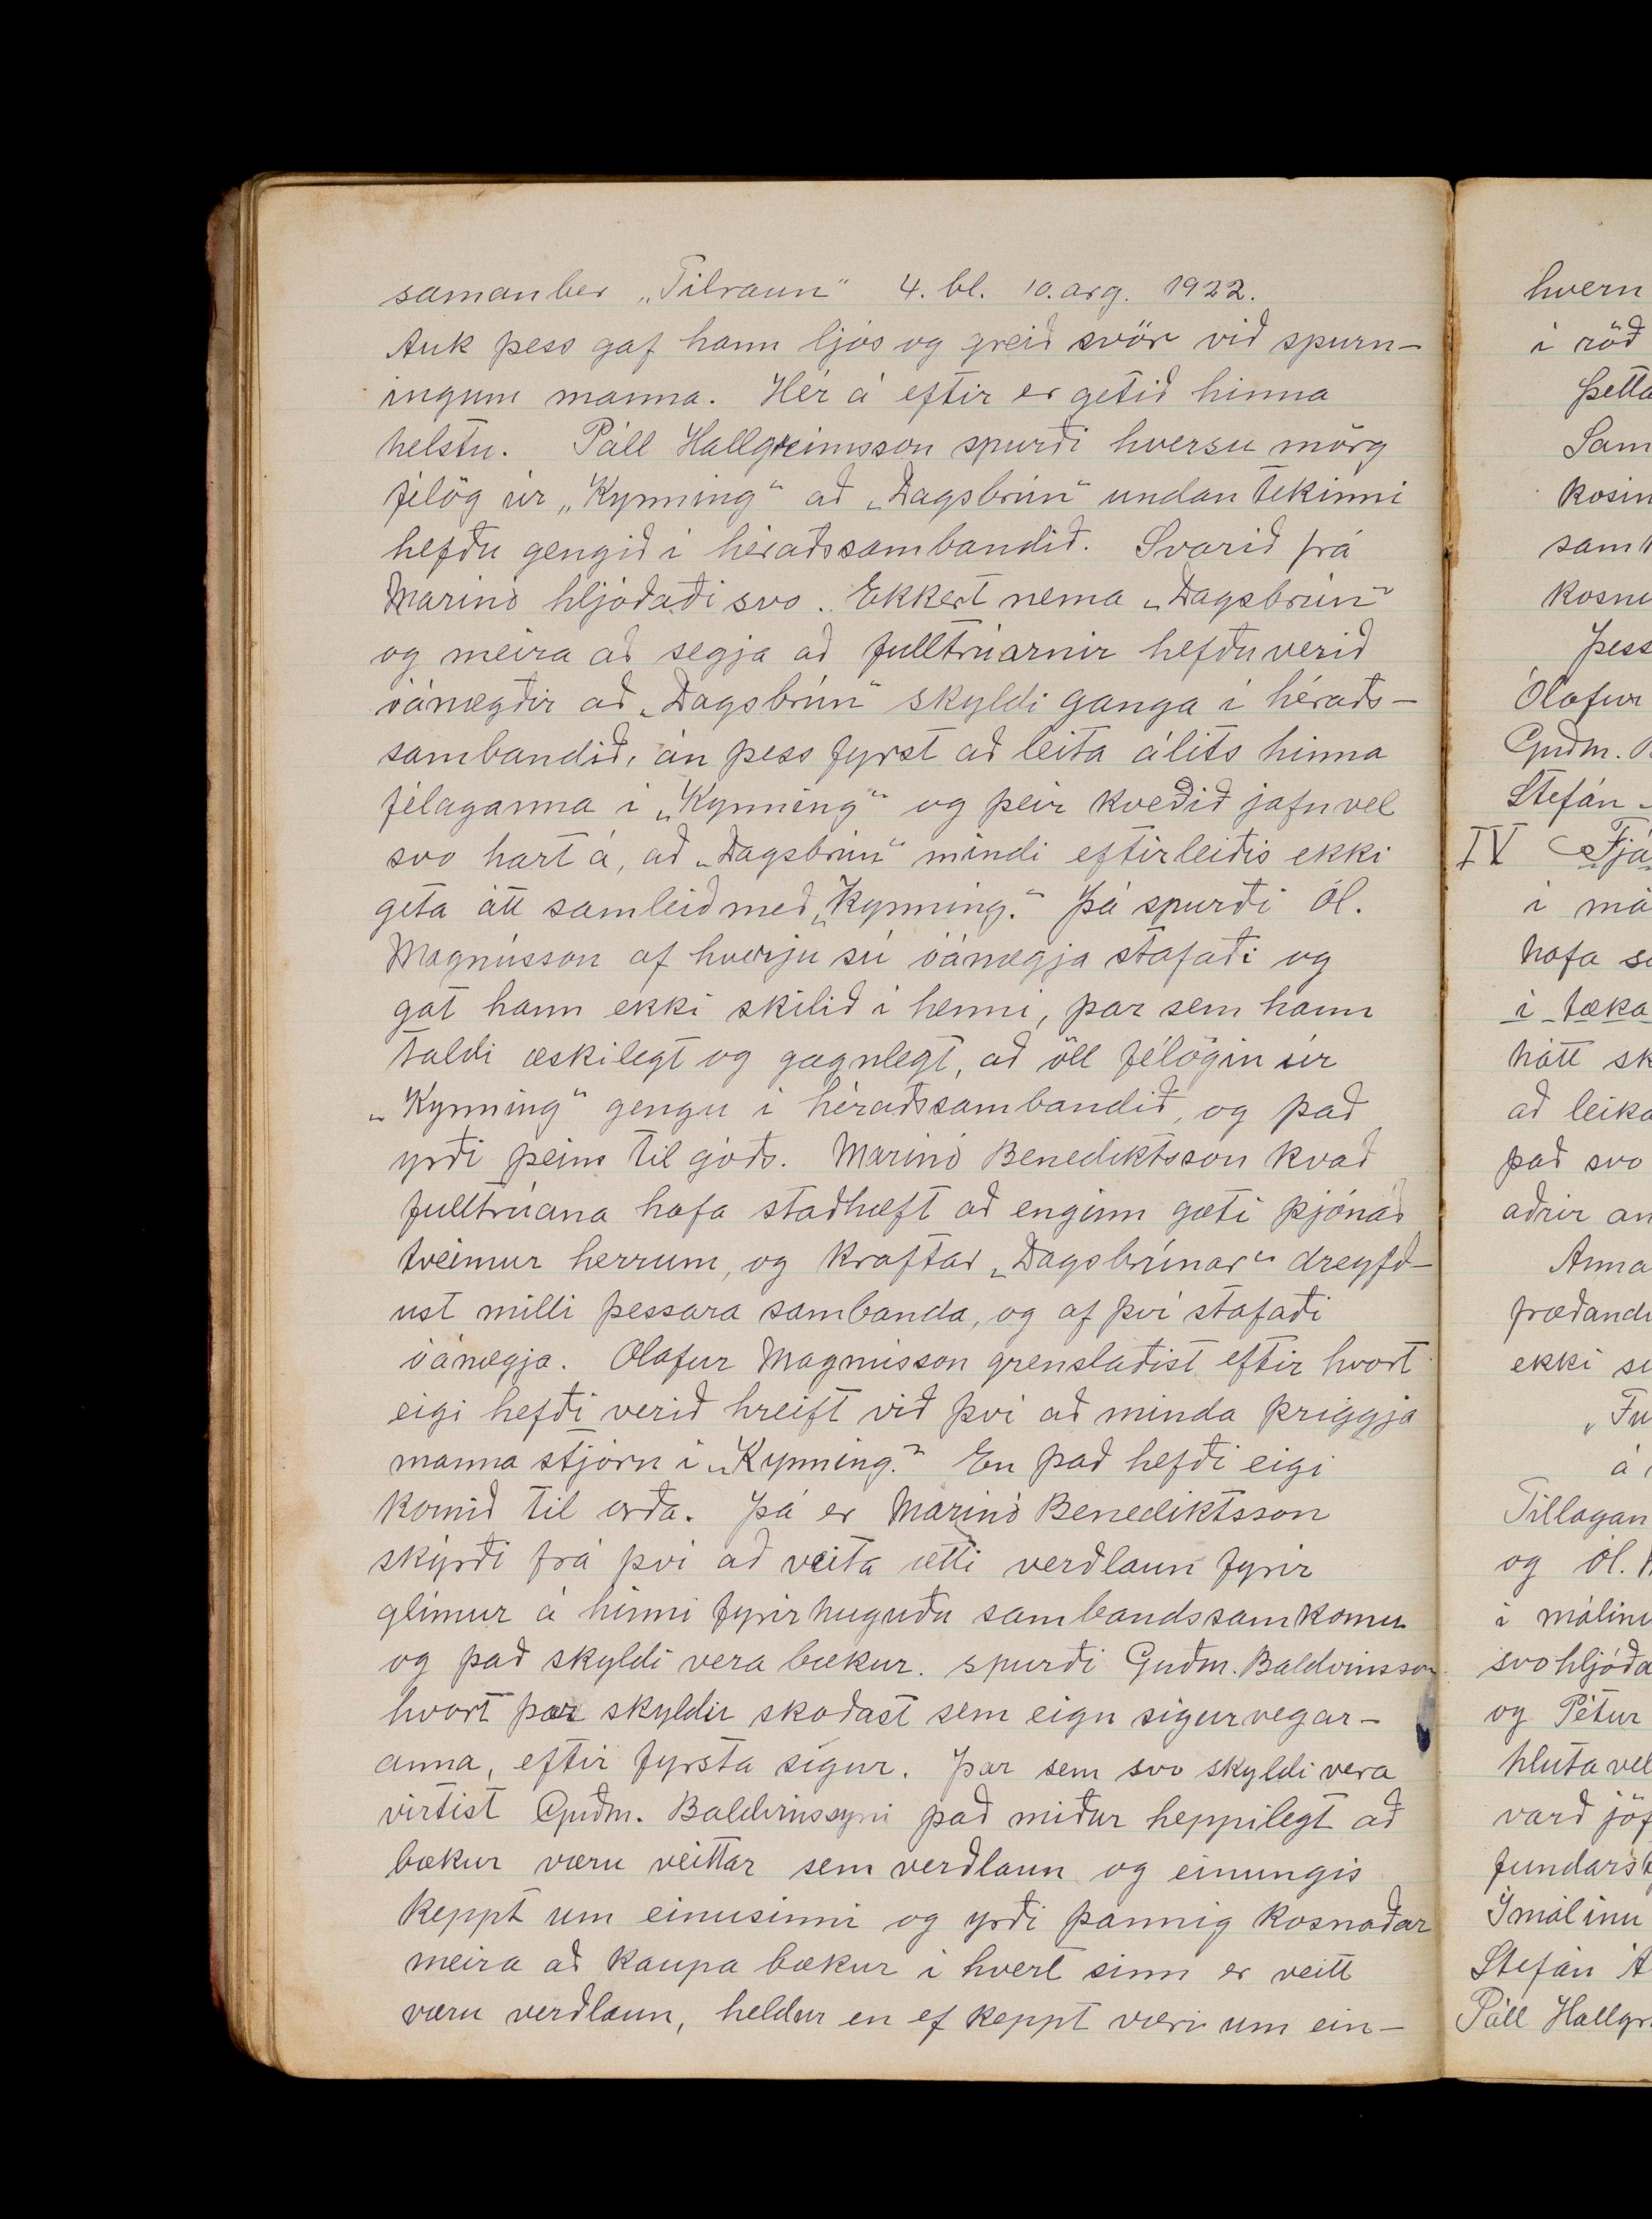 samanber „Tilraun“ 4. bl. 10. arg. 1922.
Auk þess gaf hann ljós og greið svör við spurn-
ingum manna. Hér á eftir er getið hinna
helstu. Páll Hallgrímsson spurði hversu mörg
félög úr „Kynning“ að „Dagsbrún“ undan tekinni
hefðu gengið í héraðssambandið. Svarið frá
Marinó hljóðaði svo. Ekkert nema „Dagsbrún“
og meira að segja að fulltrúarnir hefðu verið
óánægðir að „Dagsbrún“ skyldi ganga í héraðs-
sambandið, án þess fyrst að leita álits hinna
félaganna í „Kynning“ og þeir kveðið jafnvel
svo hart á, að „Dagsbrún“ mindi eftirleiðis ekki
geta átt samleið með „Kynning.“ Þá spurði Ól.
Magnússon af hverju sú óánægja stafaði og
gat hann ekki skilið í henni, þar sem hann
taldi æskilegt og gagnlegt, að öll félögin úr
„Kynning“ gengu í héraðssambandið, og það
yrði þeim til góðs. Marinó Benediktsson kvað
fulltrúana hafa staðhæft að enginn gæti þjónað
tveimur herrum, og kraftar „Dagsbrúnar“ dreyfð-
ust milli þessara sambanda, og af því stafaði
óánægja. Olafur Magnússon grenslaðist eftir hvort
eigi hefði verið hreift við því að minda þriggja
manna stjórn í „Kynning.“ En það hefði eigi
komið til orða. Þá er Marinó Benediktsson
skýrði frá því að veita ætti verðlaun fyrir
glímur á hinni fyrirhuguðu sambandssamkomu
og það skyldi vera bækur. spurði Guðm. Baldvinsson
hvort þær skyldu skoðast sem eign sigurvegar-
anna, eftir fyrsta sigur. Þar sem svo skyldi vera
virtist Guðm. Baldvinssyni það miður heppilegt að
bækur væru veittar sem verðlaun og einungis
keppt um einusinni og yrði þannig kosnaðar
meira að kaupa bækur í hvert sinn er veitt
væru verðlaun, heldur en ef keppt væri um ein-
hvern
í röð
þetta
Sam
kosin
samk
kosnu
þess
Ólafur
Guðm. B
Stefán
IV Fjá
í má
hafa se
í tæka
hátt sk
að leika
það svo
aðrir an
Anna
fræðandi
ekki se
„Fu
á
Tillagan
og Ól. M
í málinu
svohljóða
og Pétur
hluta vel
varð jöf
fundarst
Í málinu
Stefán Á
Páll Hallgr